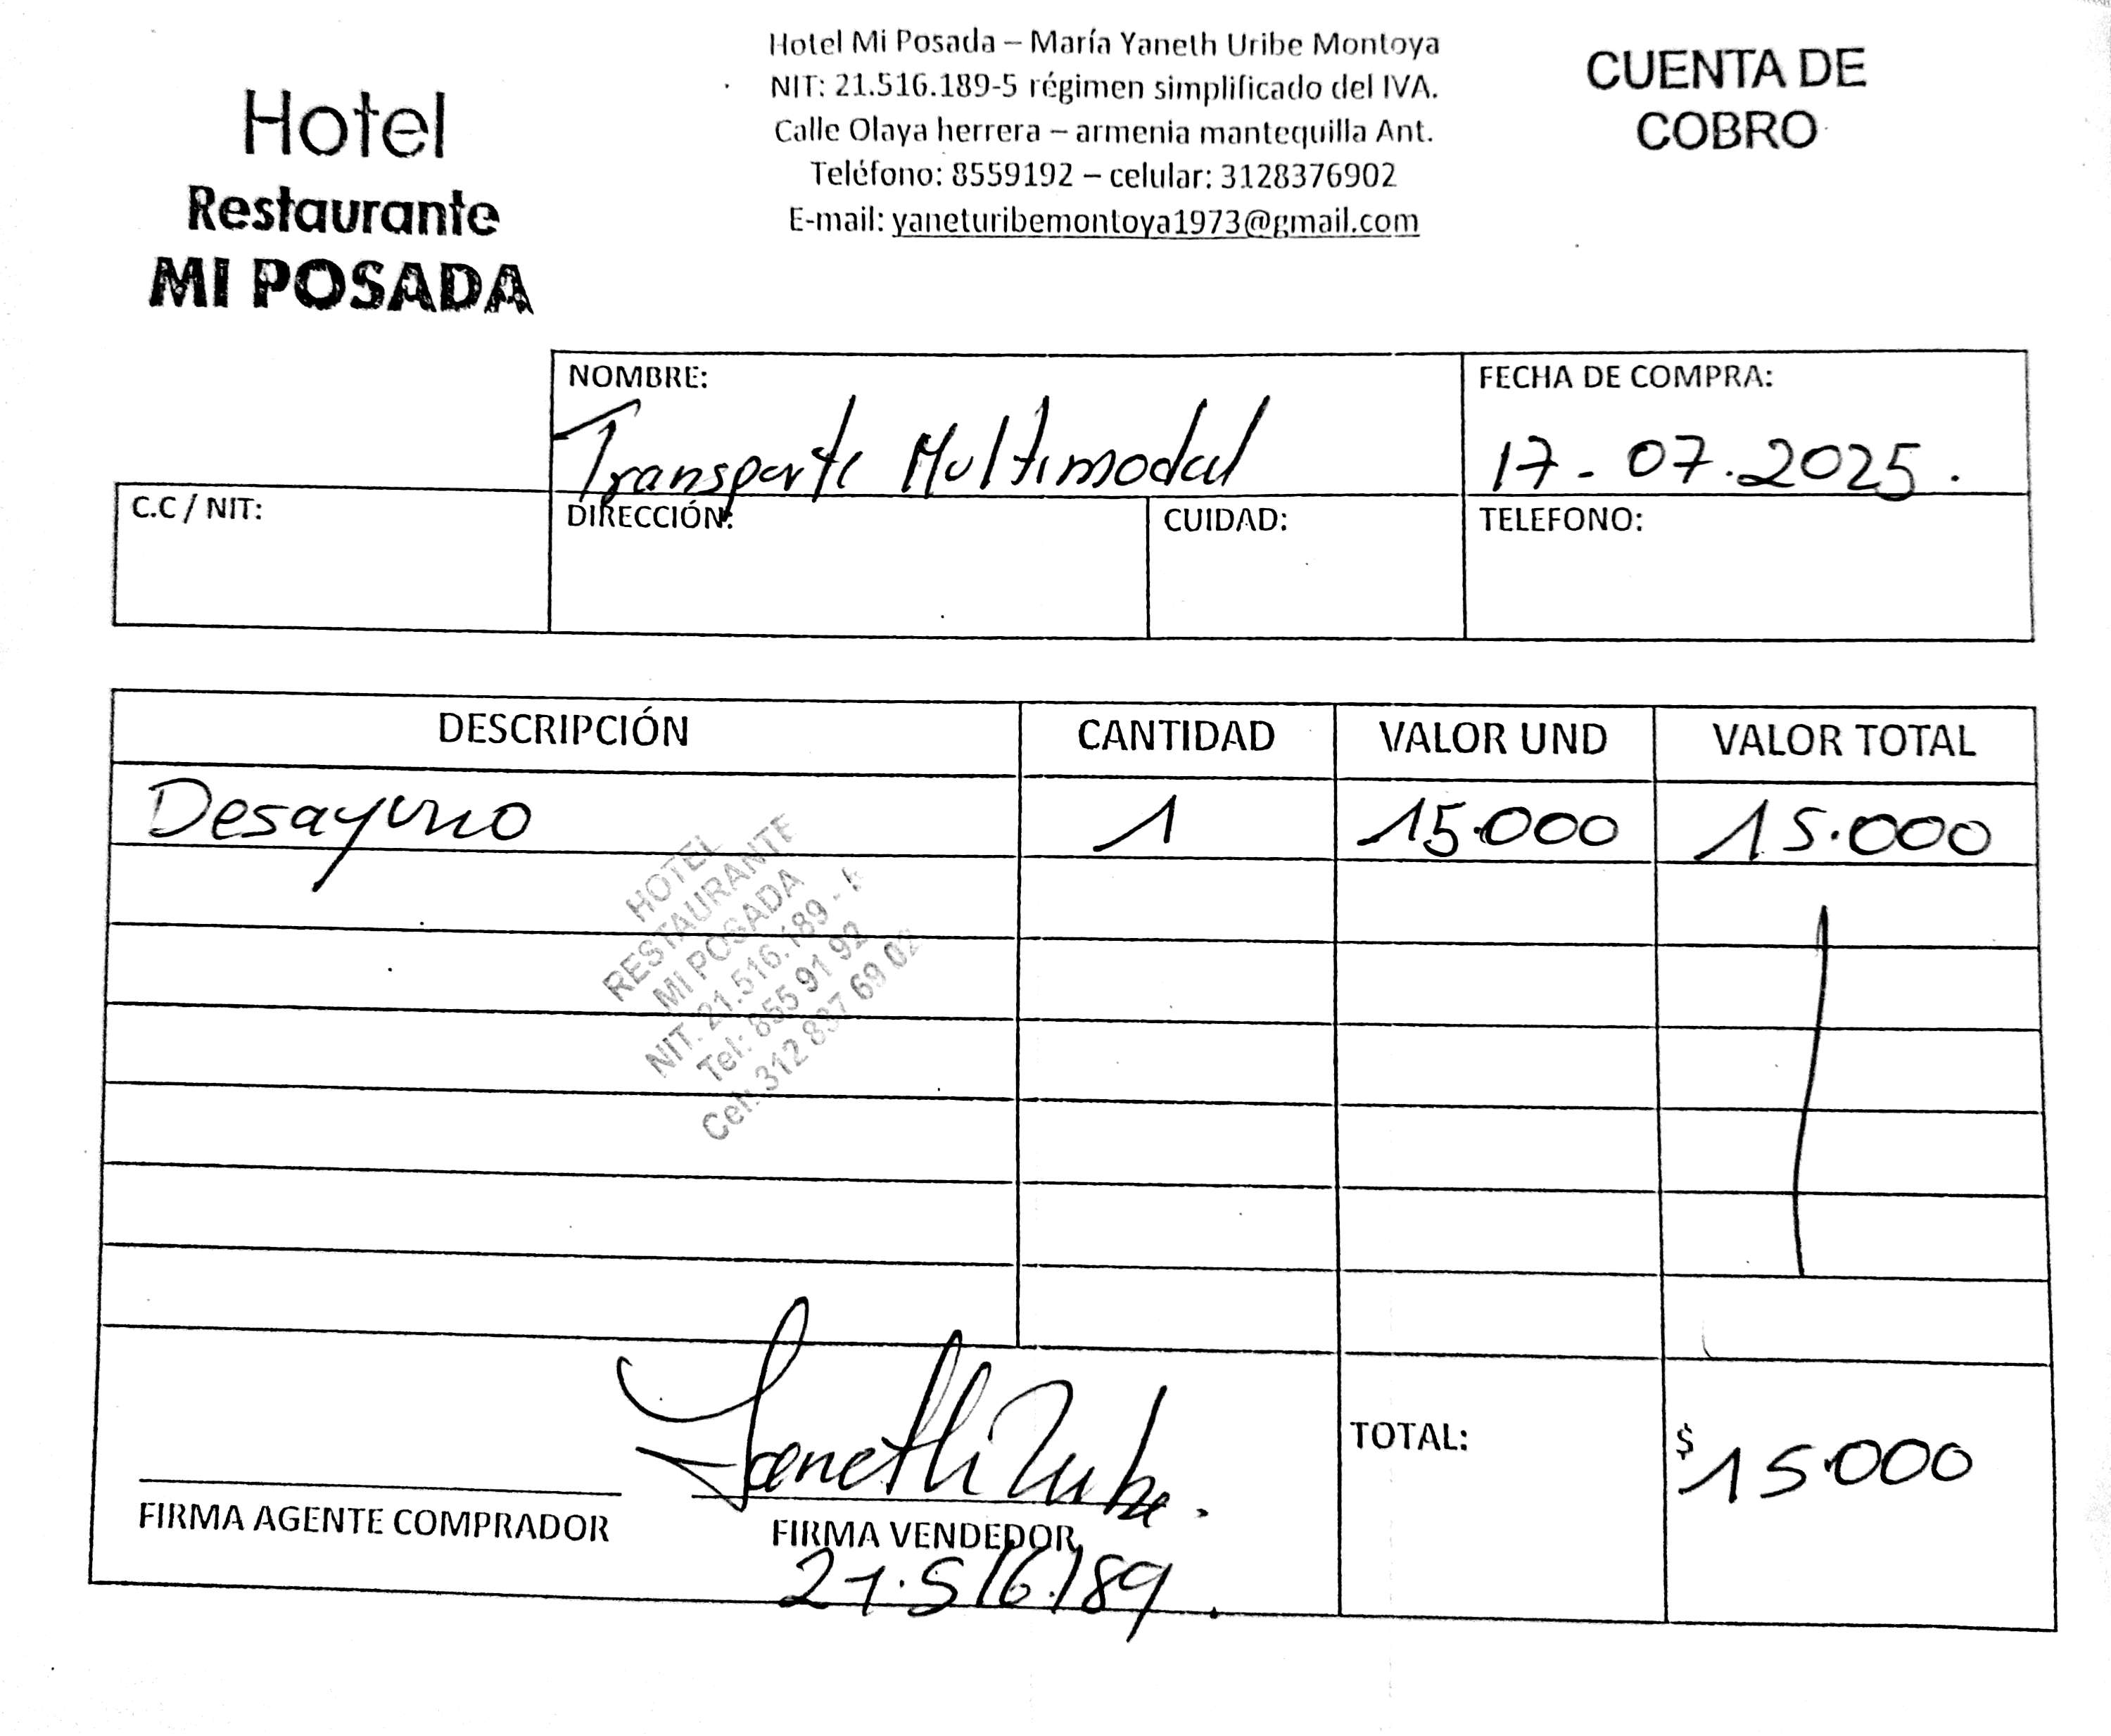 Hotel
Restaurante
MI POSADA
Hotel Mi Posada – María Yaneth Uribe Montoya
NIT: 21.516.189-5 régimen simplificado del IVA.
Calle Olaya herrera – armenia mantequilla Ant.
Teléfono: 8559192 – celular: 3128376902
E-mail: yaneturibemontoya1973@gmail.com
CUENTA DE
COBRO
NOMBRE:
Transporte Multimodal
FECHA DE COMPRA:
17-07.2025.
C.C / NIT:
DIRECCIÓN:
CUIDAD:
TELEFONO:
DESCRIPCIÓN CANTIDAD VALOR UND VALOR TOTAL
Desayuno 1 15.000 15.000
HOTEL
RESTAURANTE
MI POSADA
NIT. 21.516.189 -
Tel: 855 91 92
Cel: 312 837 69 02
Yaneth Uribe.
FIRMA AGENTE COMPRADOR
FIRMA VENDEDOR
21.516.189.
TOTAL:
$ 15.000